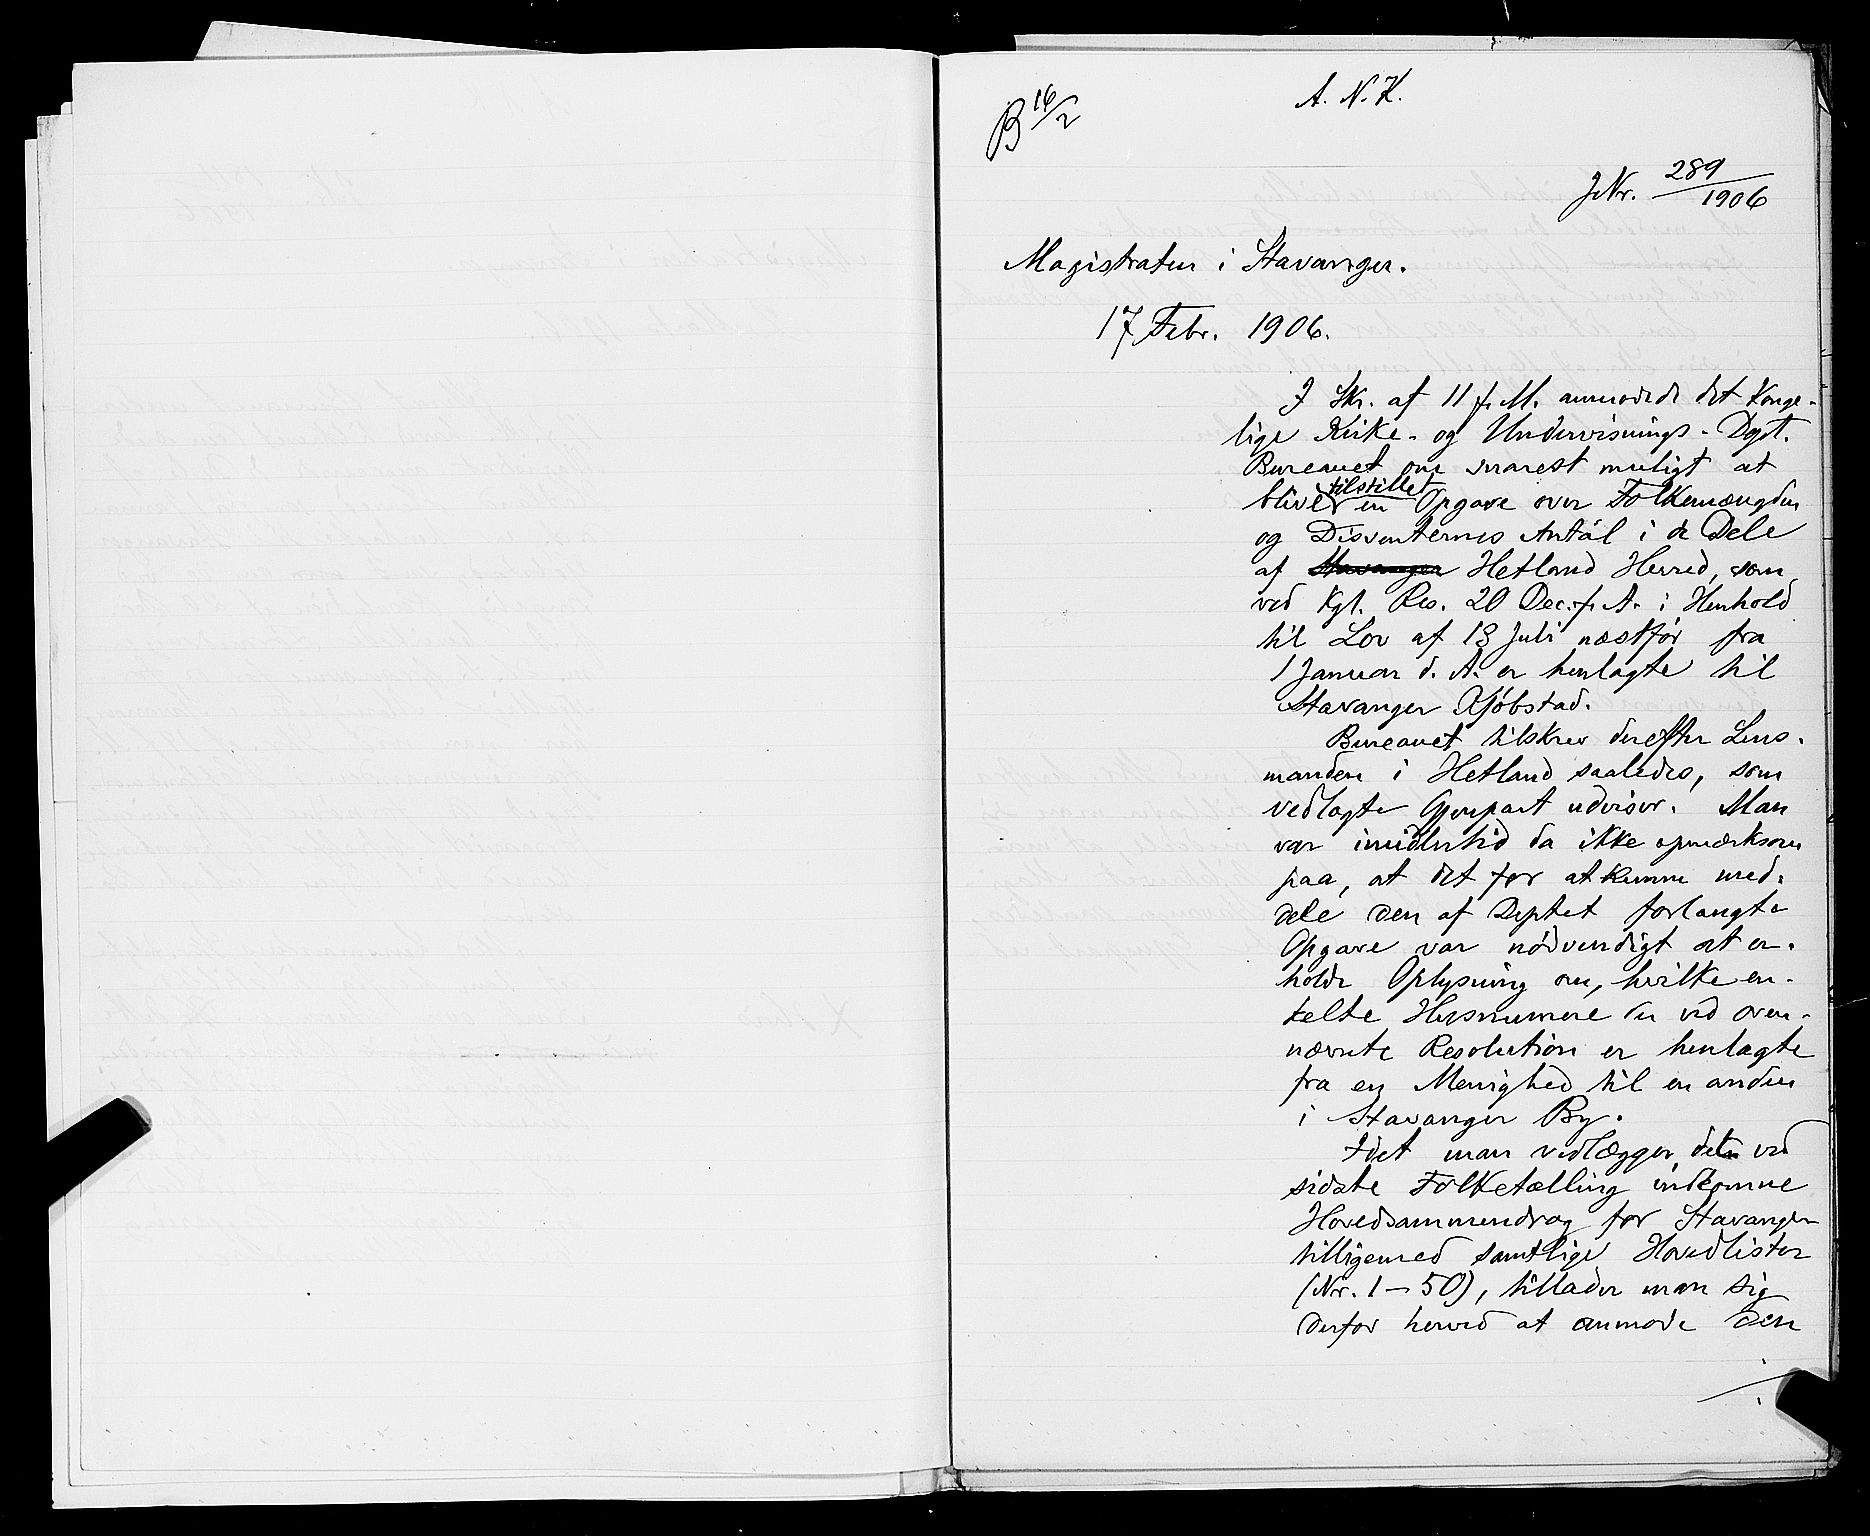 B 16/2
A. N. K.
JNr. 289/1906
Magistraten i Stavanger.
17 Febr. 1906.
I Skr. af 11 f. M. anmodede det Konge-
lige Kirke- og Undervisnings-Dept.
Bureauet om snarest muligt at
blive tilstillet en Opgave over Folkemængden
og Dissenternes Antal i de Dele
af Stavanger Hetland Herred, som
ved Kgl. Res. 20 Dec. f. A. i Henhold
til Lov af 13 Juli næstfør fra
1 Januar d. A. er henlagte til
Stavanger Kjøbstad.
Bureauet tilskrev derefter Lens-
manden i Hetland saaledes, som
vedlagte Gjenpart udviser. Man
var imidlertid da ikke opmærksom
paa, at det for at kunne med-
dele den af Deptet forlangte
Opgave var nødvendigt at er-
holde Oplysning om, hvilke en-
kelte Husnumere der ved oven-
nævnte Resolution er henlagte
fra en Menighed til en anden
i Stavanger By.
Idet man vedlægger det ved
sidste Folketælling indkomne
Hovedsammendrag for Stavanger
tilligemed samtlige Hovedlister
(Nr. 1 – 50), tillader man sig
derfor herved at anmode den